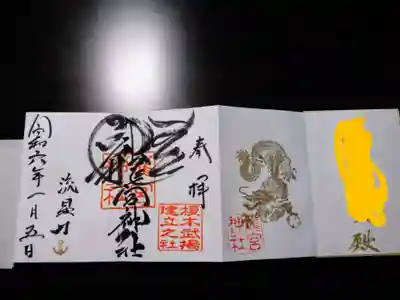 殿
龍宮
神社
奉拝
榎本武揚
建立之社
龍宮神社
令和六年一月五日